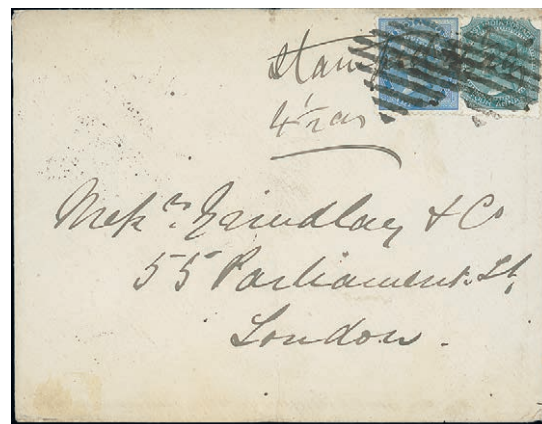 Stamp
4 1/2 as
Messrs. Grindlay & Co
55 Parliament St,
London.